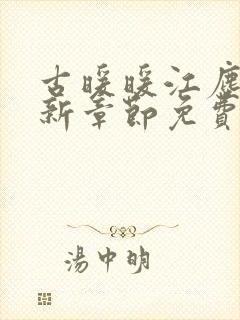 古暖暖江塵
新章節免費
湯中明